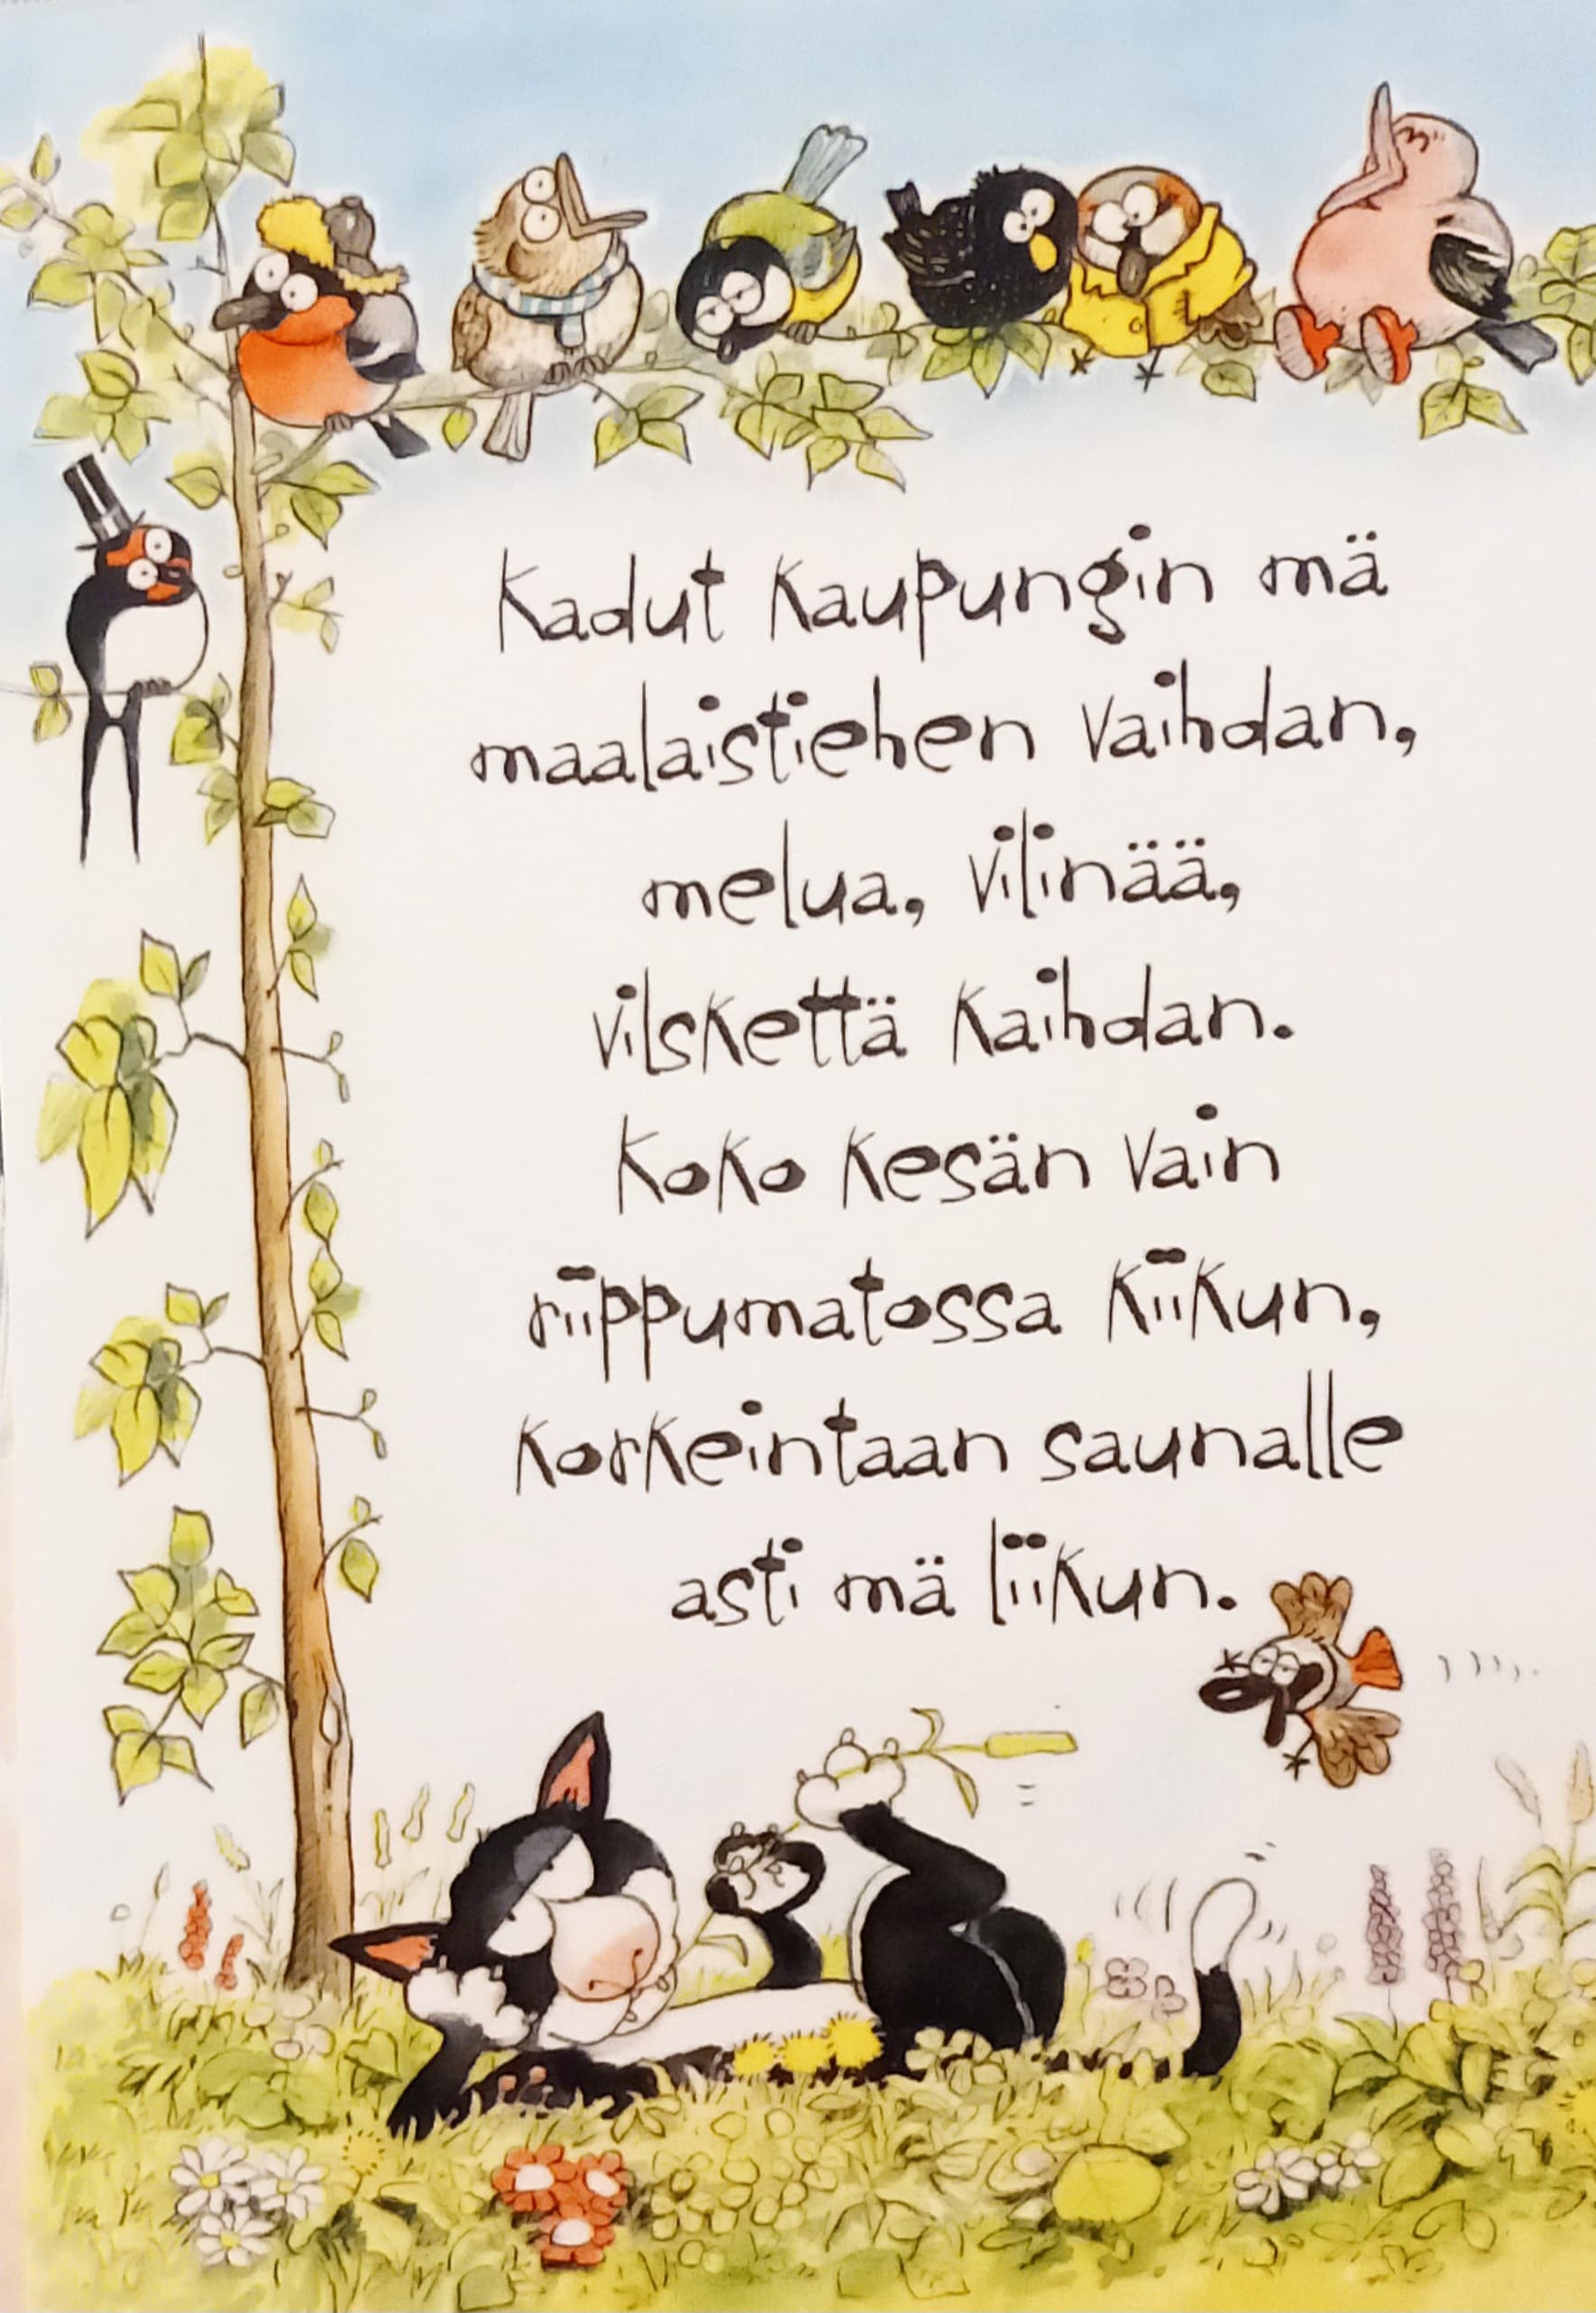 Kadut kaupungin mä
maalaistiehen vaihdan,
melua, vilinää,
vilskettä kaihdan.
Koko kesän vain
riippumatossa kiikun,
korkeintaan saunalle
asti mä liikun.